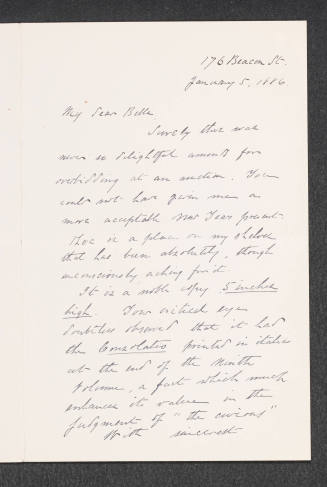 176 Beacon St.
January 5, 1886
My dear Belle
Surely there was
never so delightful amends for
overbidding at an auction. You
could not have given me a
more acceptable New Years present.
There is a place on my shelves
that has been absolutely, though
unconsciously aching for it.
It is a noble copy 5 inches
high. Your critical eye
doubtless observed that it had
the Consolatio printed in italics
at the end of the Ninth
Volume, a fact which much
enhances its value in the
judgment of "the curious"
With sincerest